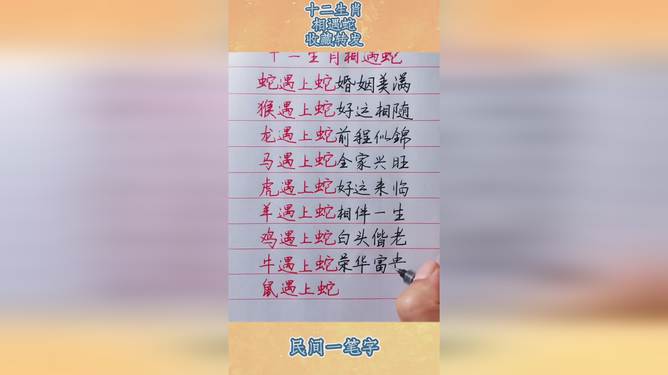 十二生肖
相遇蛇
收藏转发
十二生肖相遇蛇
蛇遇上蛇婚姻美满
猴遇上蛇好运相随
龙遇上蛇前程似錦
马遇上蛇全家兴旺
虎遇上蛇好运来临
羊遇上蛇相伴一生
鸡遇上蛇白头偕老
牛遇上蛇荣华富
鼠遇上蛇
民间一笔字